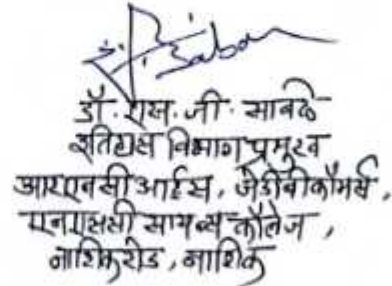 डॉ. एस. जी. साबळे
इतिहास विभाग प्रमुख
आरएनसी आर्टस, जेडीबी कॉमर्स,
एनएससी सायन्स कॉलेज,
नाशिकरोड, नाशिक